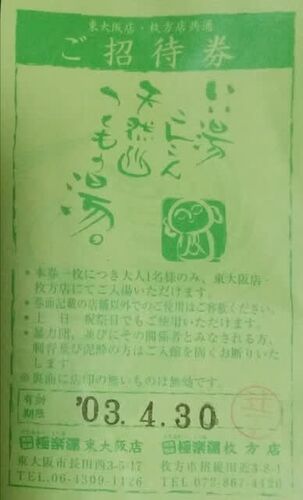 東大阪店・枚方店共通
ご招待券
いい湯
こんこん
天然山
つくもの湯。
※本券一枚につき大人1名様のみ、東大阪店・
枚方店にてご入場いただけます。
※券面記載の店舗以外でのご使用はご容赦ください。
※土 日 祝祭日でもご使用いただけます。
※暴力団、並びにその関係者とみなされる方、
刺青及び泥酔の方はご入館を固くお断りいた
します。
※裏面に店印の無いものは無効です。
有効
期限
'03.4.30
極楽湯 東大阪店
東大阪市長田西3-5-17
TEL 06-4309-1126
極楽湯 枚方店
枚方市招提田近3-8-1
TEL 072-867-4126